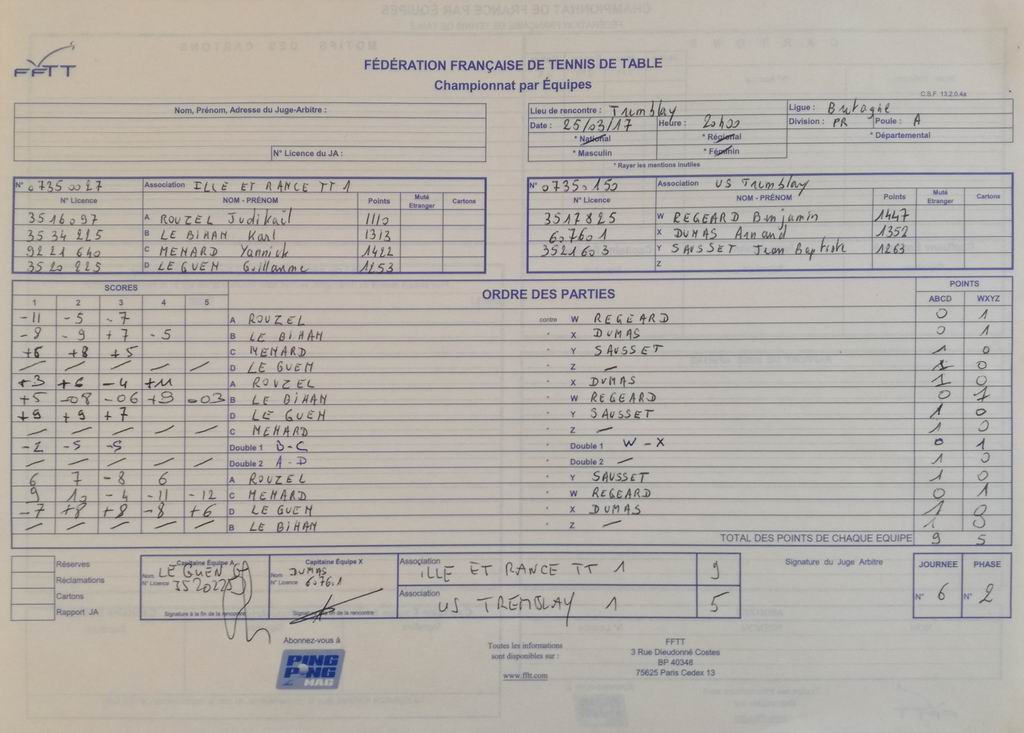 FFTT
FÉDÉRATION FRANÇAISE DE TENNIS DE TABLE
Championnat par Équipes
C.S.F. 13.2.0.4a
Nom, Prénom, Adresse du Juge-Arbitre :
N° Licence du JA :
Lieu de rencontre : Tremblay Ligue : Bretagne
Date : 25/03/17 Heure : 20h00 Division : PR Poule : A
* National * Régional * Départemental
* Masculin * Féminin
* Rayer les mentions inutiles
N° 0735 0027 Association ILLE ET RANCE TT 1
N° Licence NOM - PRÉNOM Points Muté Etranger Cartons
3516097 A ROUZEL Judikaël 1110
3534225 B LE BIHAN Karl 1313
9221640 C MENARD Yannick 1422
3520225 D LE GUEN Guillaume 1253
N° 0735 0150 Association US Tremblay
N° Licence NOM - PRÉNOM Points Muté Etranger Cartons
3517825 W REGEARD Benjamin 1447
607601 X DUMAS Arnaud 1352
3521603 Y SAUSSET Jean Baptiste 1263
Z
SCORES ORDRE DES PARTIES POINTS
1 2 3 4 5 ABCD WXYZ
-11 -5 -7 A ROUZEL contre W REGEARD 0 1
-8 -9 +7 -5 B LE BIHAN " X DUMAS 0 1
+6 +8 +5 C MENARD " Y SAUSSET 1 0
/ / / / / D LE GUEN " Z / 1 0
+3 +6 -4 +11 A ROUZEL " X DUMAS 1 0
+5 -08 -06 +9 -03 B LE BIHAN " W REGEARD 0 1
+9 +9 +7 D LE GUEN " Y SAUSSET 1 0
/ / / / / C MENARD " Z / 1 0
-2 -5 -5 Double 1 B-C " Double 1 W-X 0 1
/ / / / / Double 2 A-D " Double 2 / 1 0
6 7 -8 6 A ROUZEL " Y SAUSSET 1 0
9 10 -4 -11 -12 C MENARD " W REGEARD 0 1
-7 +8 +8 -8 +6 D LE GUEN " X DUMAS 1 0
/ / / / / B LE BIHAN " Z / 1 0
TOTAL DES POINTS DE CHAQUE EQUIPE 9 5
Réserves
Réclamations
Cartons
Rapport JA
Capitaine Équipe A
Nom LE GUEN G
N° Licence 3520225
Signature à la fin de la rencontre
Capitaine Équipe X
Nom DUMAS
N° Licence
Signature à la fin de la rencontre
Association ILLE ET RANCE TT 1 9
Association US TREMBLAY 1 5
Signature du Juge Arbitre
JOURNEE PHASE
N° 6 N° 2
Abonnez-vous à
PING PONG MAG
Toutes les informations
sont disponibles sur :
www.fftt.com
FFTT
3 Rue Dieudonné Costes
BP 40348
75625 Paris Cedex 13